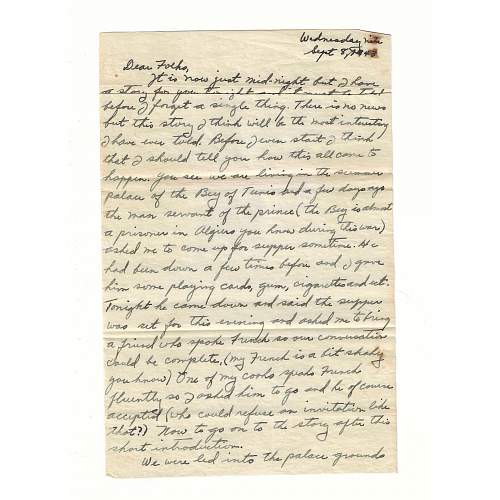 Wednesday nite
Sept 8, 1943
Dear Folks,
It is now just mid-night but I have
a story for you to-night and it must be told
before I forget a single thing. There is no news
but this story I think will be the most interesting
I have ever told. Before I even start I think
that I should tell you how this all came to
happen. You see we are living in the summer
palace of the Bey of Tunis and a few days ago
the man servant of the prince (the Bey is almost
a prisoner in Algiers you know during this war)
asked me to come up for supper sometime. He
had been down a few times before and I gave
him some playing cards, gum, cigarettes and ect.
Tonight he came down and said the supper
was set for this evening and asked me to bring
a friend who spoke French so our conversation
could be complete. (my French is a bit shaky
you know) One of my cooks speaks French
fluently so I asked him to go and he of course
accepted (who could refuse an invitation like
that?) Now to go on to the story after this
short introduction.
We were led into the palace grounds